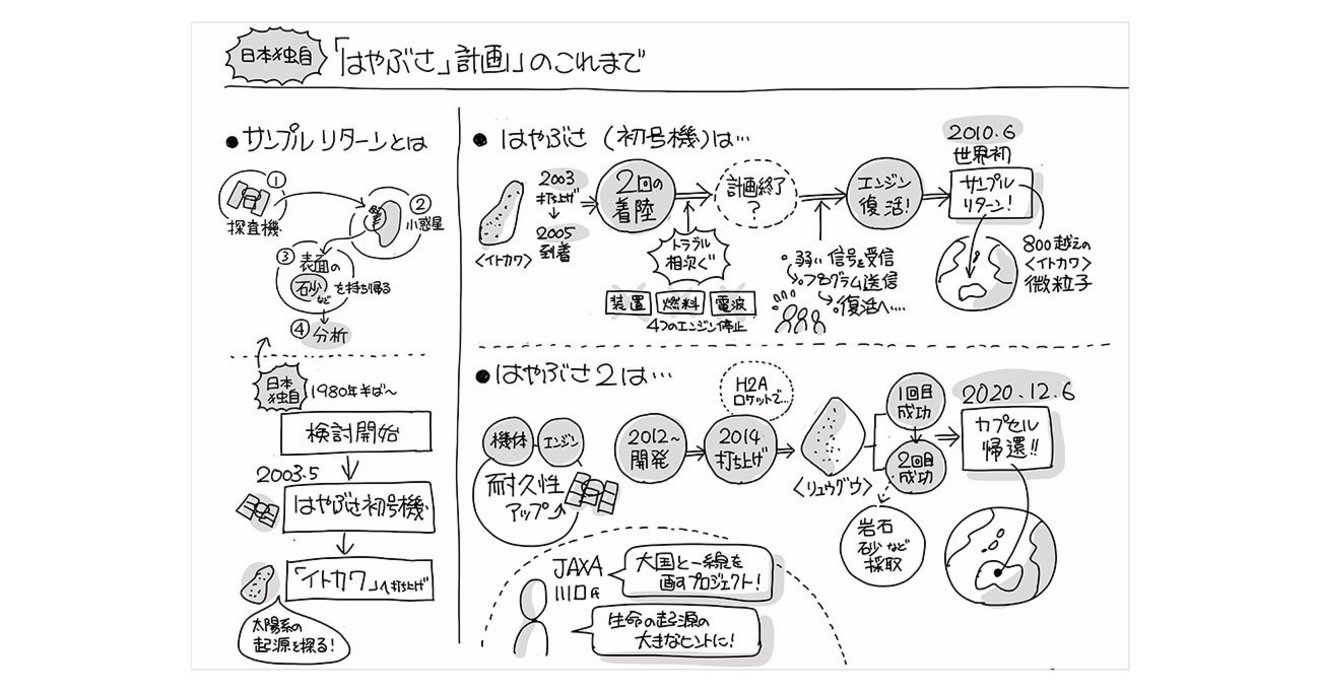 日本独自
「はやぶさ」計画」のこれまで
●サンプルリターンとは
①
探査機
②
小惑星
③
表面の
砂など
を持ち帰る
④分析
日本
独自
1980年半ば〜
検討開始
2003.5
はやぶさ初号機
「イトカワ」へ打ち上げ
太陽系の
起源を探る!
●はやぶさ(初号機)は…
<イトカワ>
2003
打ち上げ
↓
2005
到着
2回の
着陸
トラブル
相次ぐ
装置 燃料 電波
4つのエンジン停止
計画終了
?
・弱い信号を受信
・プログラム送信
・復活へ…
エンジン
復活!
2010.6
世界初
サンプル
リターン!
800越えの
<イトカワ>
微粒子
●はやぶさ2は…
機体 エンジン
耐久性
アップ↑
2012〜
開発
H2A
ロケットで…
2014
打ち上げ
<リュウグウ>
1回目
成功
2回目
成功
岩石
砂など
採取
2020.12.6
カプセル
帰還!!
JAXA
川口氏
大国と一線を
画すプロジェクト!
生命の起源の
大きなヒントに!